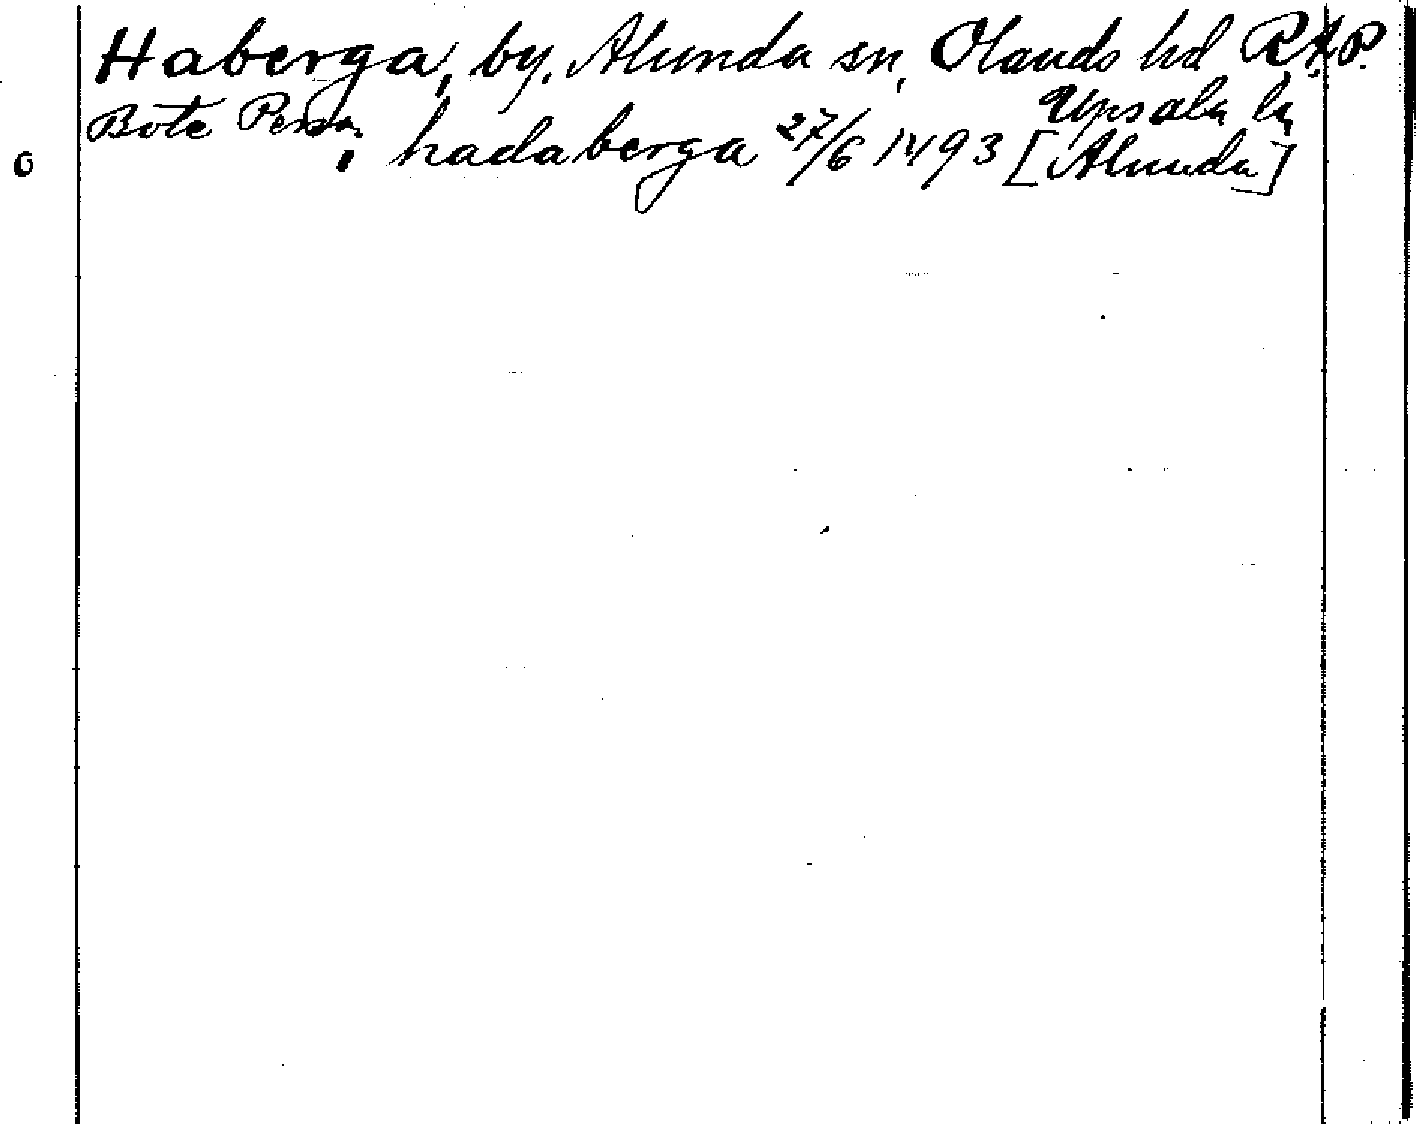 Haberga, by, Alunda sn, Olands hd R.A.P.
Upsala län
Bote Persson i hadaberga 27/6 1493 [Alunda]